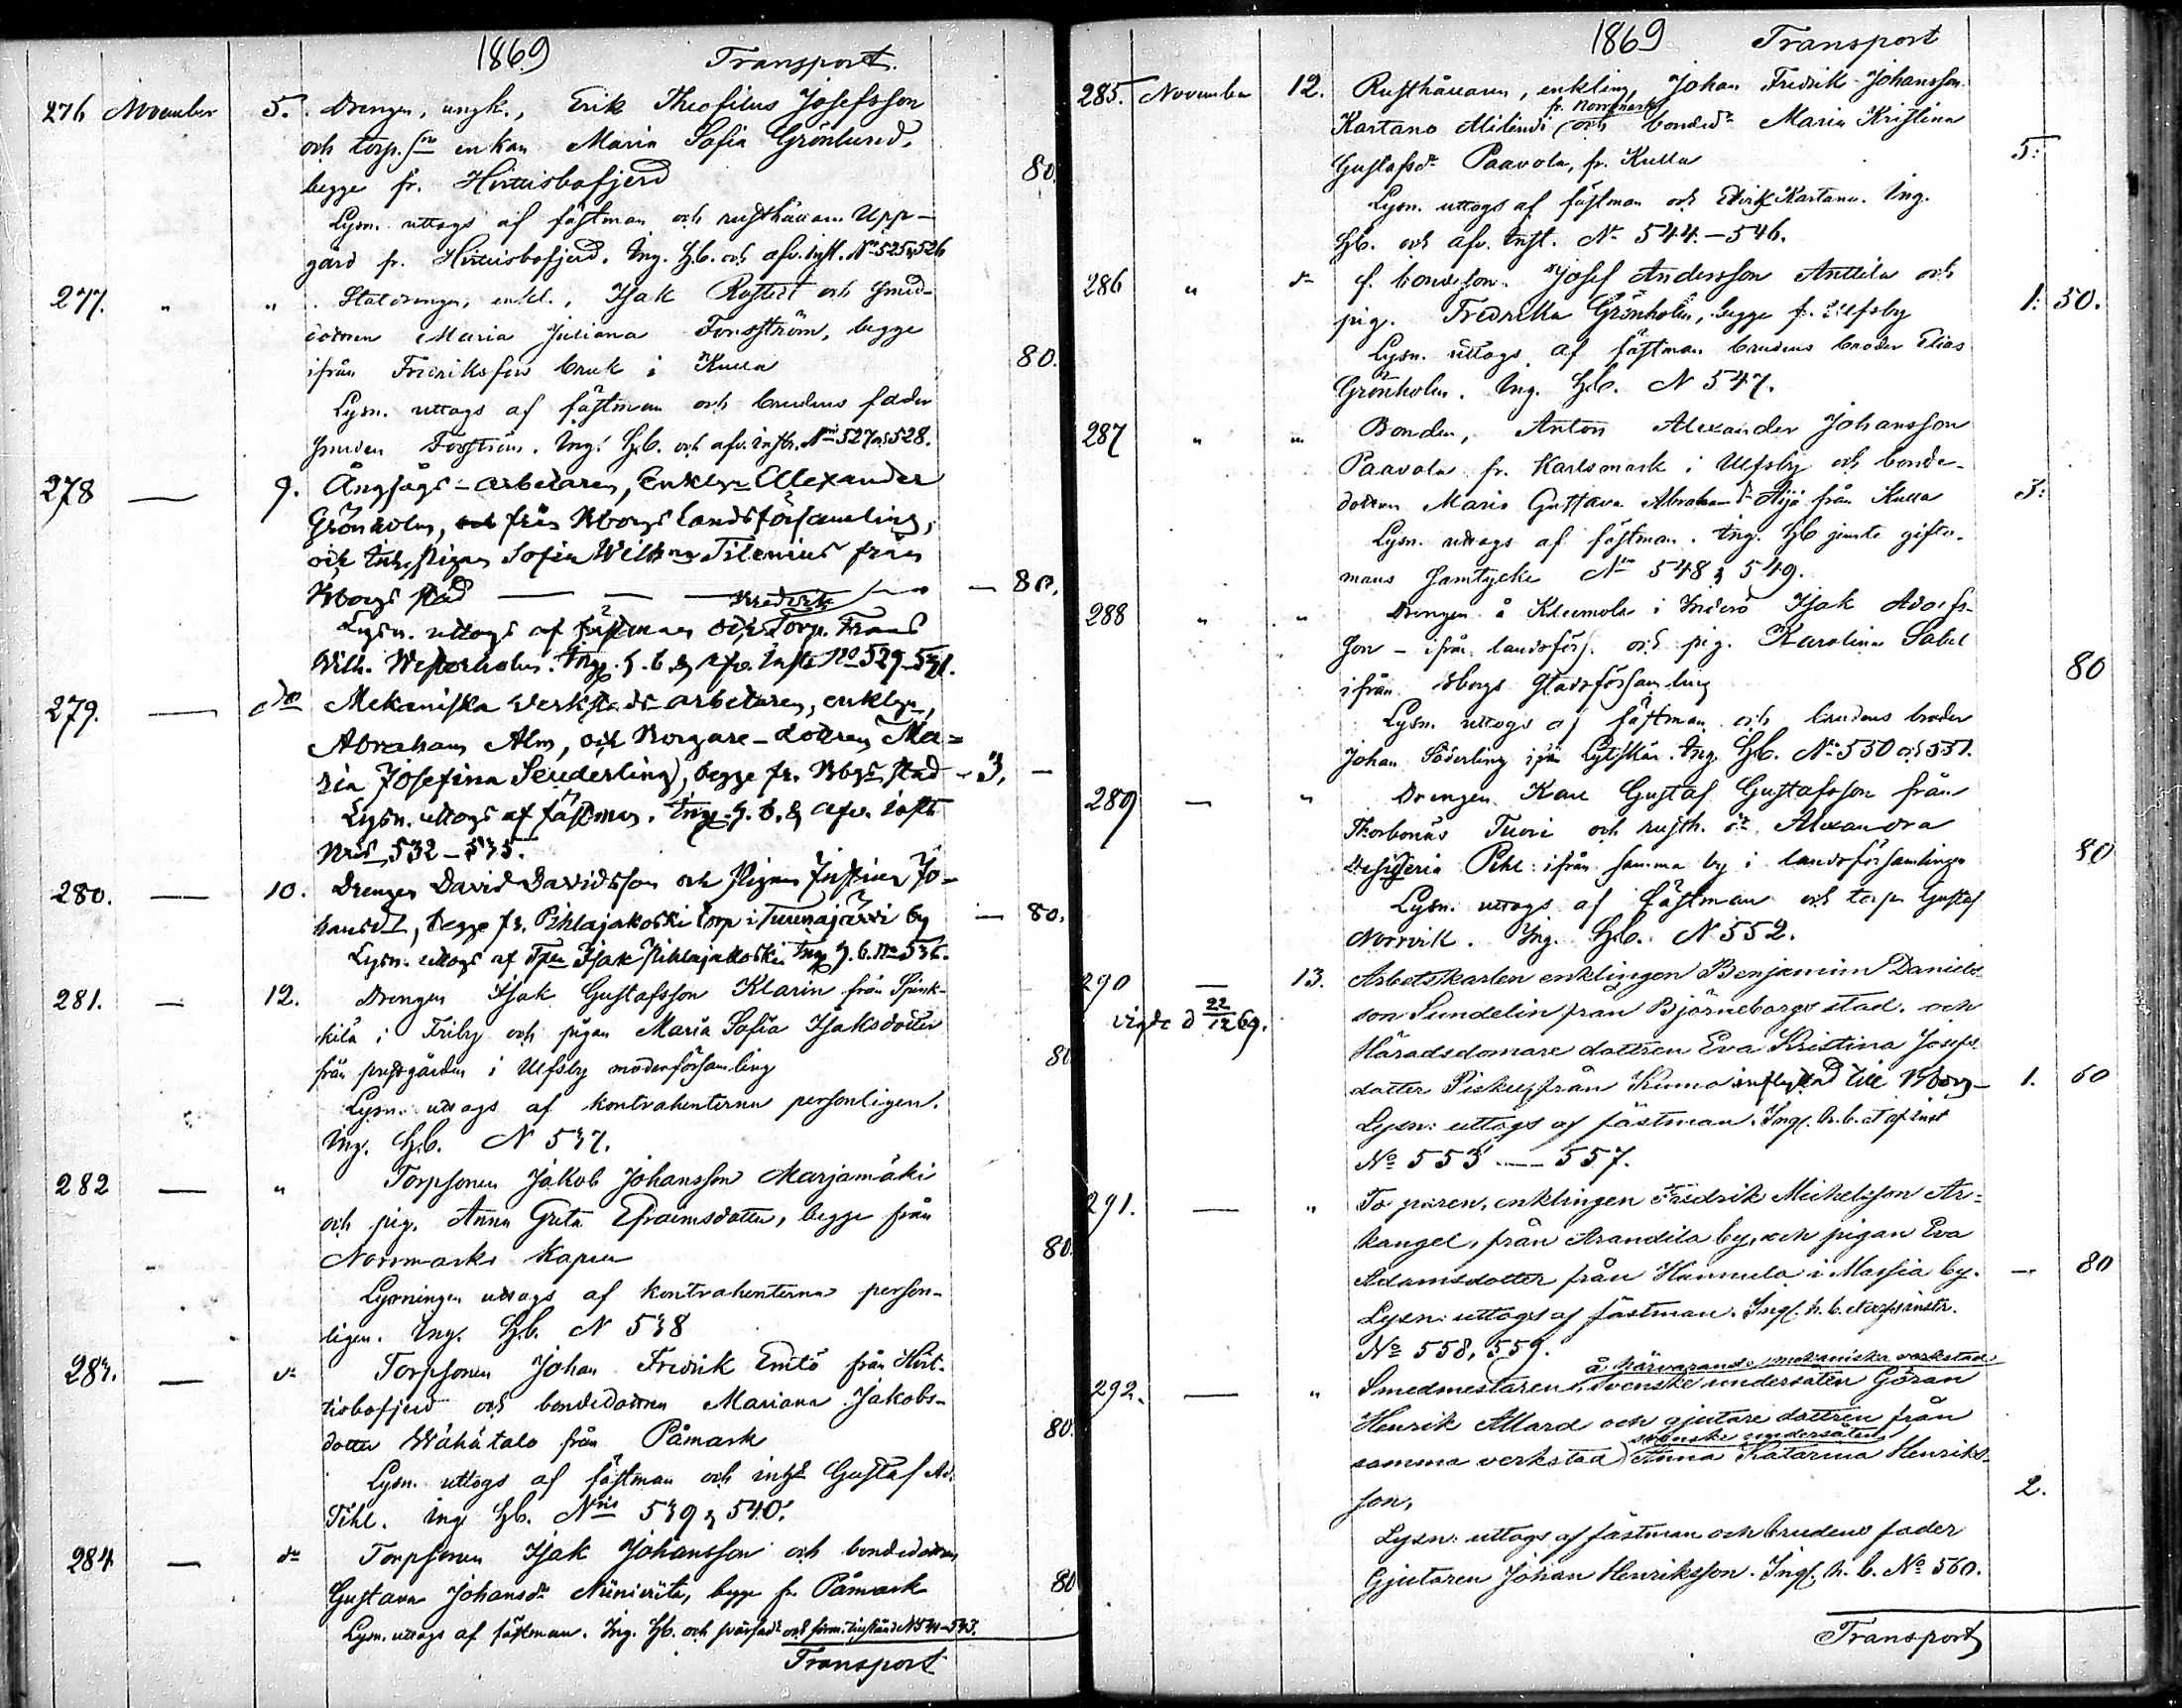 1869 Transport.
276 November 5. Drengen, ungk., Erik Theofilus Josefsson
och torp. s:ns enkan Maria Sofia Grönlund,
begge fr. Hvittisbofjerd 80.
Lysn. uttogs af fästman och rusthållaren Upp-
gård fr. Hvittisbofjerd. Ing. H.b. och afv. inst. No 525, 526
277. " " Statdrengen, enkl., Isak Rostedt och smed-
dottren Maria Juliana Forsström, begge
ifrån Fredriksfors bruk i Kulla 80.
Lysn. uttogs af fästman och brudens fader
smeden Forsström. Ing. H.b. och afv. instr. Nris 527 & 528.
278 — 9. Ångsågs-arbetaren, Enklgn Alexander
Grönholm, från Bborgs Landsförsamling,
och Inh. Pigan Sofia Wilhna Tilenius från
Bborgs stad — — — 80.
Fredrik
Lysn. uttogs af fästman och Torp. Frans
Wilh. Westerholm. Ing. h. b. & afv. inst. No 529-531.
279. — do Mekaniska Verkstads-arbetaren, enklgn,
Abraham Alm, och Borgare-dottren Ma=
ria Josefina Seuderling, begge fr. Bbgs stad - 3, —
Lysn. uttogs af fästman. Ing. h. b. & afv. inst.
Nris 532-535.
280. — 10. Drengen David Davidsson och Pigan Justina Jo-
hansd:r, begge fr. Pihlajakoski torp i Tuurujärvi by — 80.
Lysn. uttogs af Tpn Isak Pihlajakoski Ing. h. b. No 536.
281. — 12. Drengen Isak Gustafsson Klarin från Spink-
kilä i Friby och pigan Maria Sofia Isaksdotter
från prestgården i Ulfsby moderförsamling 80
Lysn. uttogs af kontrahenterna personligen.
Ing. H.b. N 537.
282 — " Torpsonen Jakob Johansson Marjamäki
och pig. Anna Greta Efraimsdotter, begge från
Norrmarks Kapell 80.
Lysningen uttogs af kontrahenterna person-
ligen. Ing. H.b. N 538
283. — do Torpsonen Johan Fredrik Enitö från Hvit-
tisbofjerd och bondedottren Mariana Jakobs-
dotter Wähätalo från Påmark 80.
Lysn. uttogs af fästman och inh. Gustaf Ad.
Tihl. Ing. H.b. Nris 539 & 540.
284 — do Torpsonen Isak Johansson och bondedottren
Gustava Johansd:r Niinisita, begge fr. Påmark 80
Lysn. uttogs af fästman. Ing. H.b. och N 541-543.
Transport
1869 Transport
285. November 12. Rusthållaren, enkling, Johan Fredrik Johansson
fr. Norrmark
Kartano Mélindi och bonded:r Maria Kristina
Gustafsd:r Paavola, fr. Kulla 5:
Lysn. uttogs af fästman och Kartano. Ing.
H.b. och afv. Inst. No 544.-546.
286 " do f. bondeson. Josef Andersson Anttila och
pig. Fredrika Grönholm, begge fr. Ulfsby 1: 50.
Lysn. uttogs af fästman brudens broder Elias
Grönholm. Ing. H.b. N 547.
287 " " Bonden, Anton Alexander Johansson
Paavola fr. Karlsmark i Ulfsby och bonde-
dottren Maria Gustava Abrahamsd:r Äijö från Kulla 3:
Lysn. uttogs af fästman. Ing. H.b jemte gifto-
mans samtycke Nris 548 & 549.
288 " " Drengen å Kleemola i Inderö Isak Adolfs-
son - ifrån landsförs. och pig. Karolina Sabel
ifrån Bborgs Stadsförsamling 80
Lysn. uttogs af fästman och brudens broder
Johan Söderling ifrån Lytskär. Ing. H.b. No 550 och 551.
289 — " Drengen Karl Gustaf Gustafsson från
Torbonäs Tuori och rusth. d:r Alexandra
Desideria Pihl ifrån samma by i landsförsamlingen 80
Lysn. uttogs af fästman och torp. Gustaf
Norrvik. Ing. H.b. N 552.
290 — 13. Arbetskarlen enklingen Benjamin Daniels-
vigde d 22/12 69.
son Sundelin från Björneborgs stad. och
Häradsdomare dottren Eva Kristina Josefs-
dotter Piskul från Kumo inflyttad till Bborg- 1. 60
Lysn: uttogs af fästman. Ingf. h. b. et af inst
No 553 — 557.
291. — " Torparen, enklingen Fredrik Michelsson Ar=
kangel, från Arandila by, och pigan Eva
Adamsdotter från Hannula i Massia by. — 80
Lysn: uttogs af fästman. Ingf. h. b. et afv. instr.
No 558, 559.
å härvarande mekaniska verkstad
292. — " Smedmestaren, svenske undersåten Göran
Henrik Allard och gjutare dottren från
svenske undersåten
samma verkstad Anna Katarina Henriks-
son, 2.
Lysn: uttogs af fästman och brudens fader
Gjutaren Johan Henriksson. Ingf. h. b. No 560.
Transport